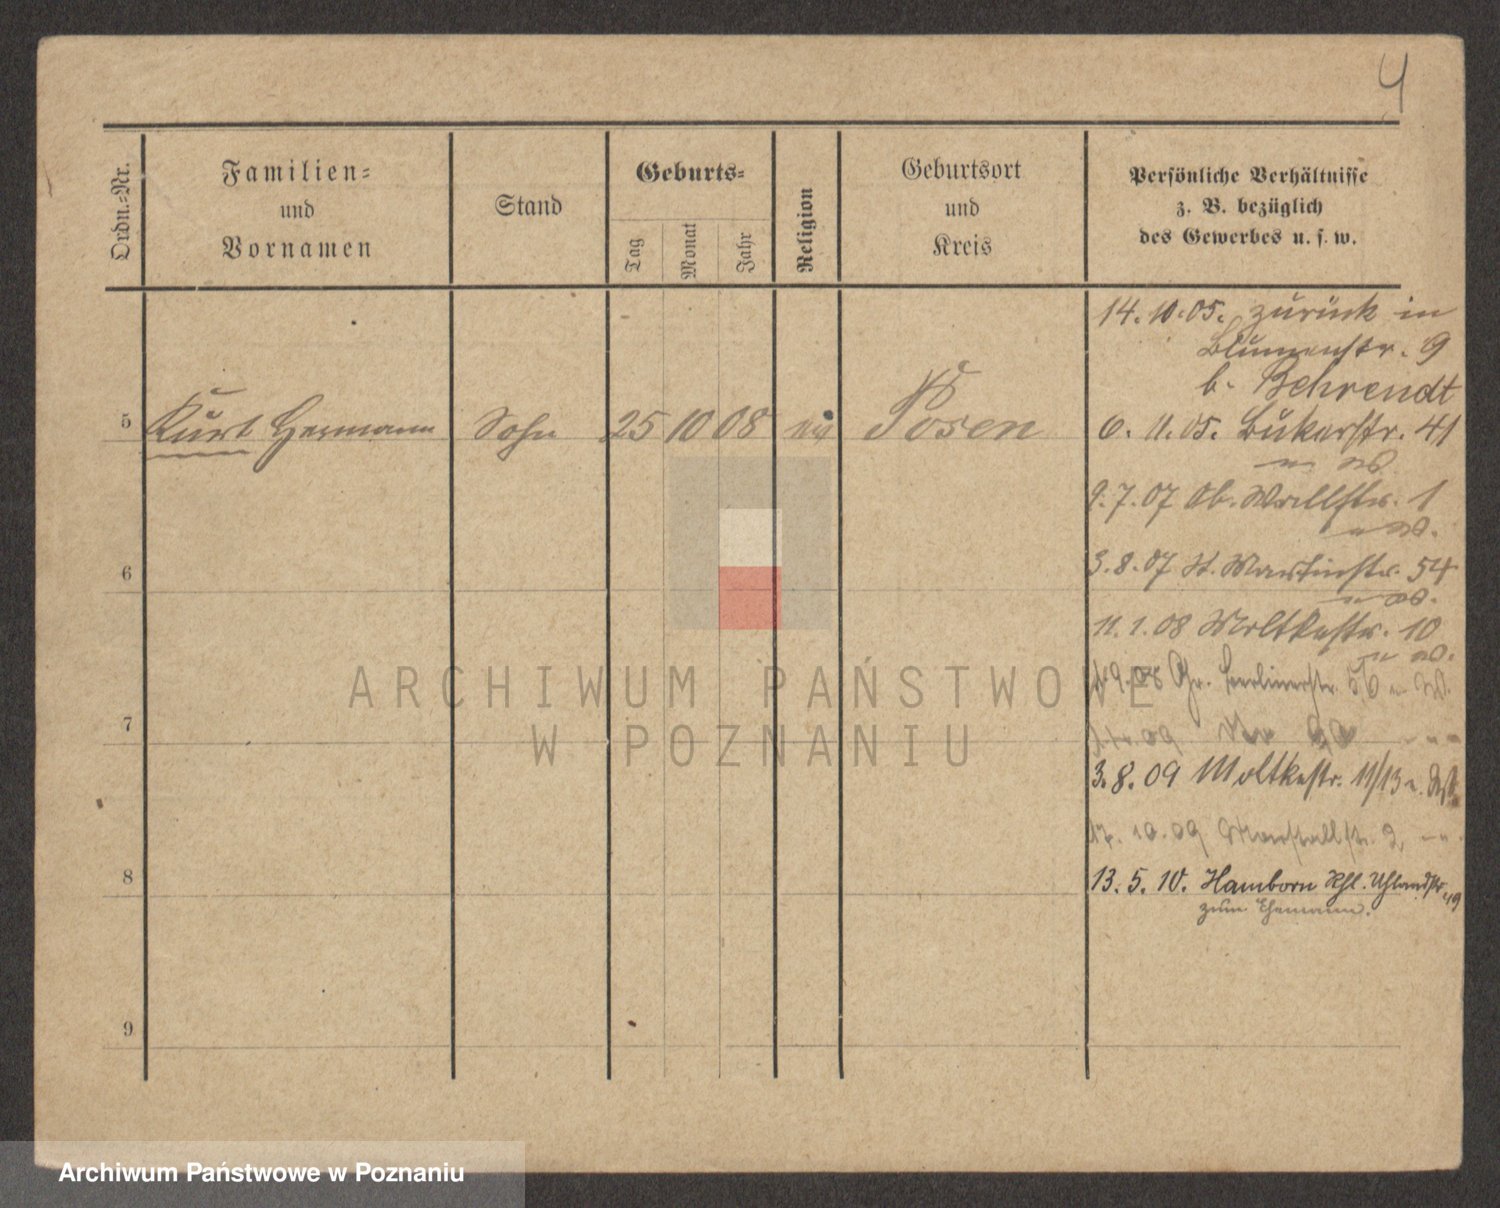 4
Ordn.-Nr.
Familien-
und
Vornamen
Stand
Geburts-
Tag
Monat
Jahr
Religion
Geburtsort
und
Kreis
Persönliche Verhältnisse
z. B. bezüglich
des Gewerbes u. s. w.
14. 10. 05. zurück in
Blumenstr. 9
b. Behrendt
5 Kurt Hermann Sohn 25 10 08 Posen
6. 11. 05. Bukerstr. 41
9. 7. 07 Ob. Wallstr. 1
6
3. 8. 07 St. Martinstr. 54
11. 1. 08 Moltkestr. 10
9. 08 Gr. Berlinerstr. 56
7
09
3. 8. 09 Moltkestr. 11/13
10. 09 Marstallstr. 2
8
13. 5. 10. Hamborn Rhl. Uhlandstr. 49
zum Ehemann.
9
ARCHIWUM PAŃSTWOWE
W POZNANIU
Archiwum Państwowe w Poznaniu